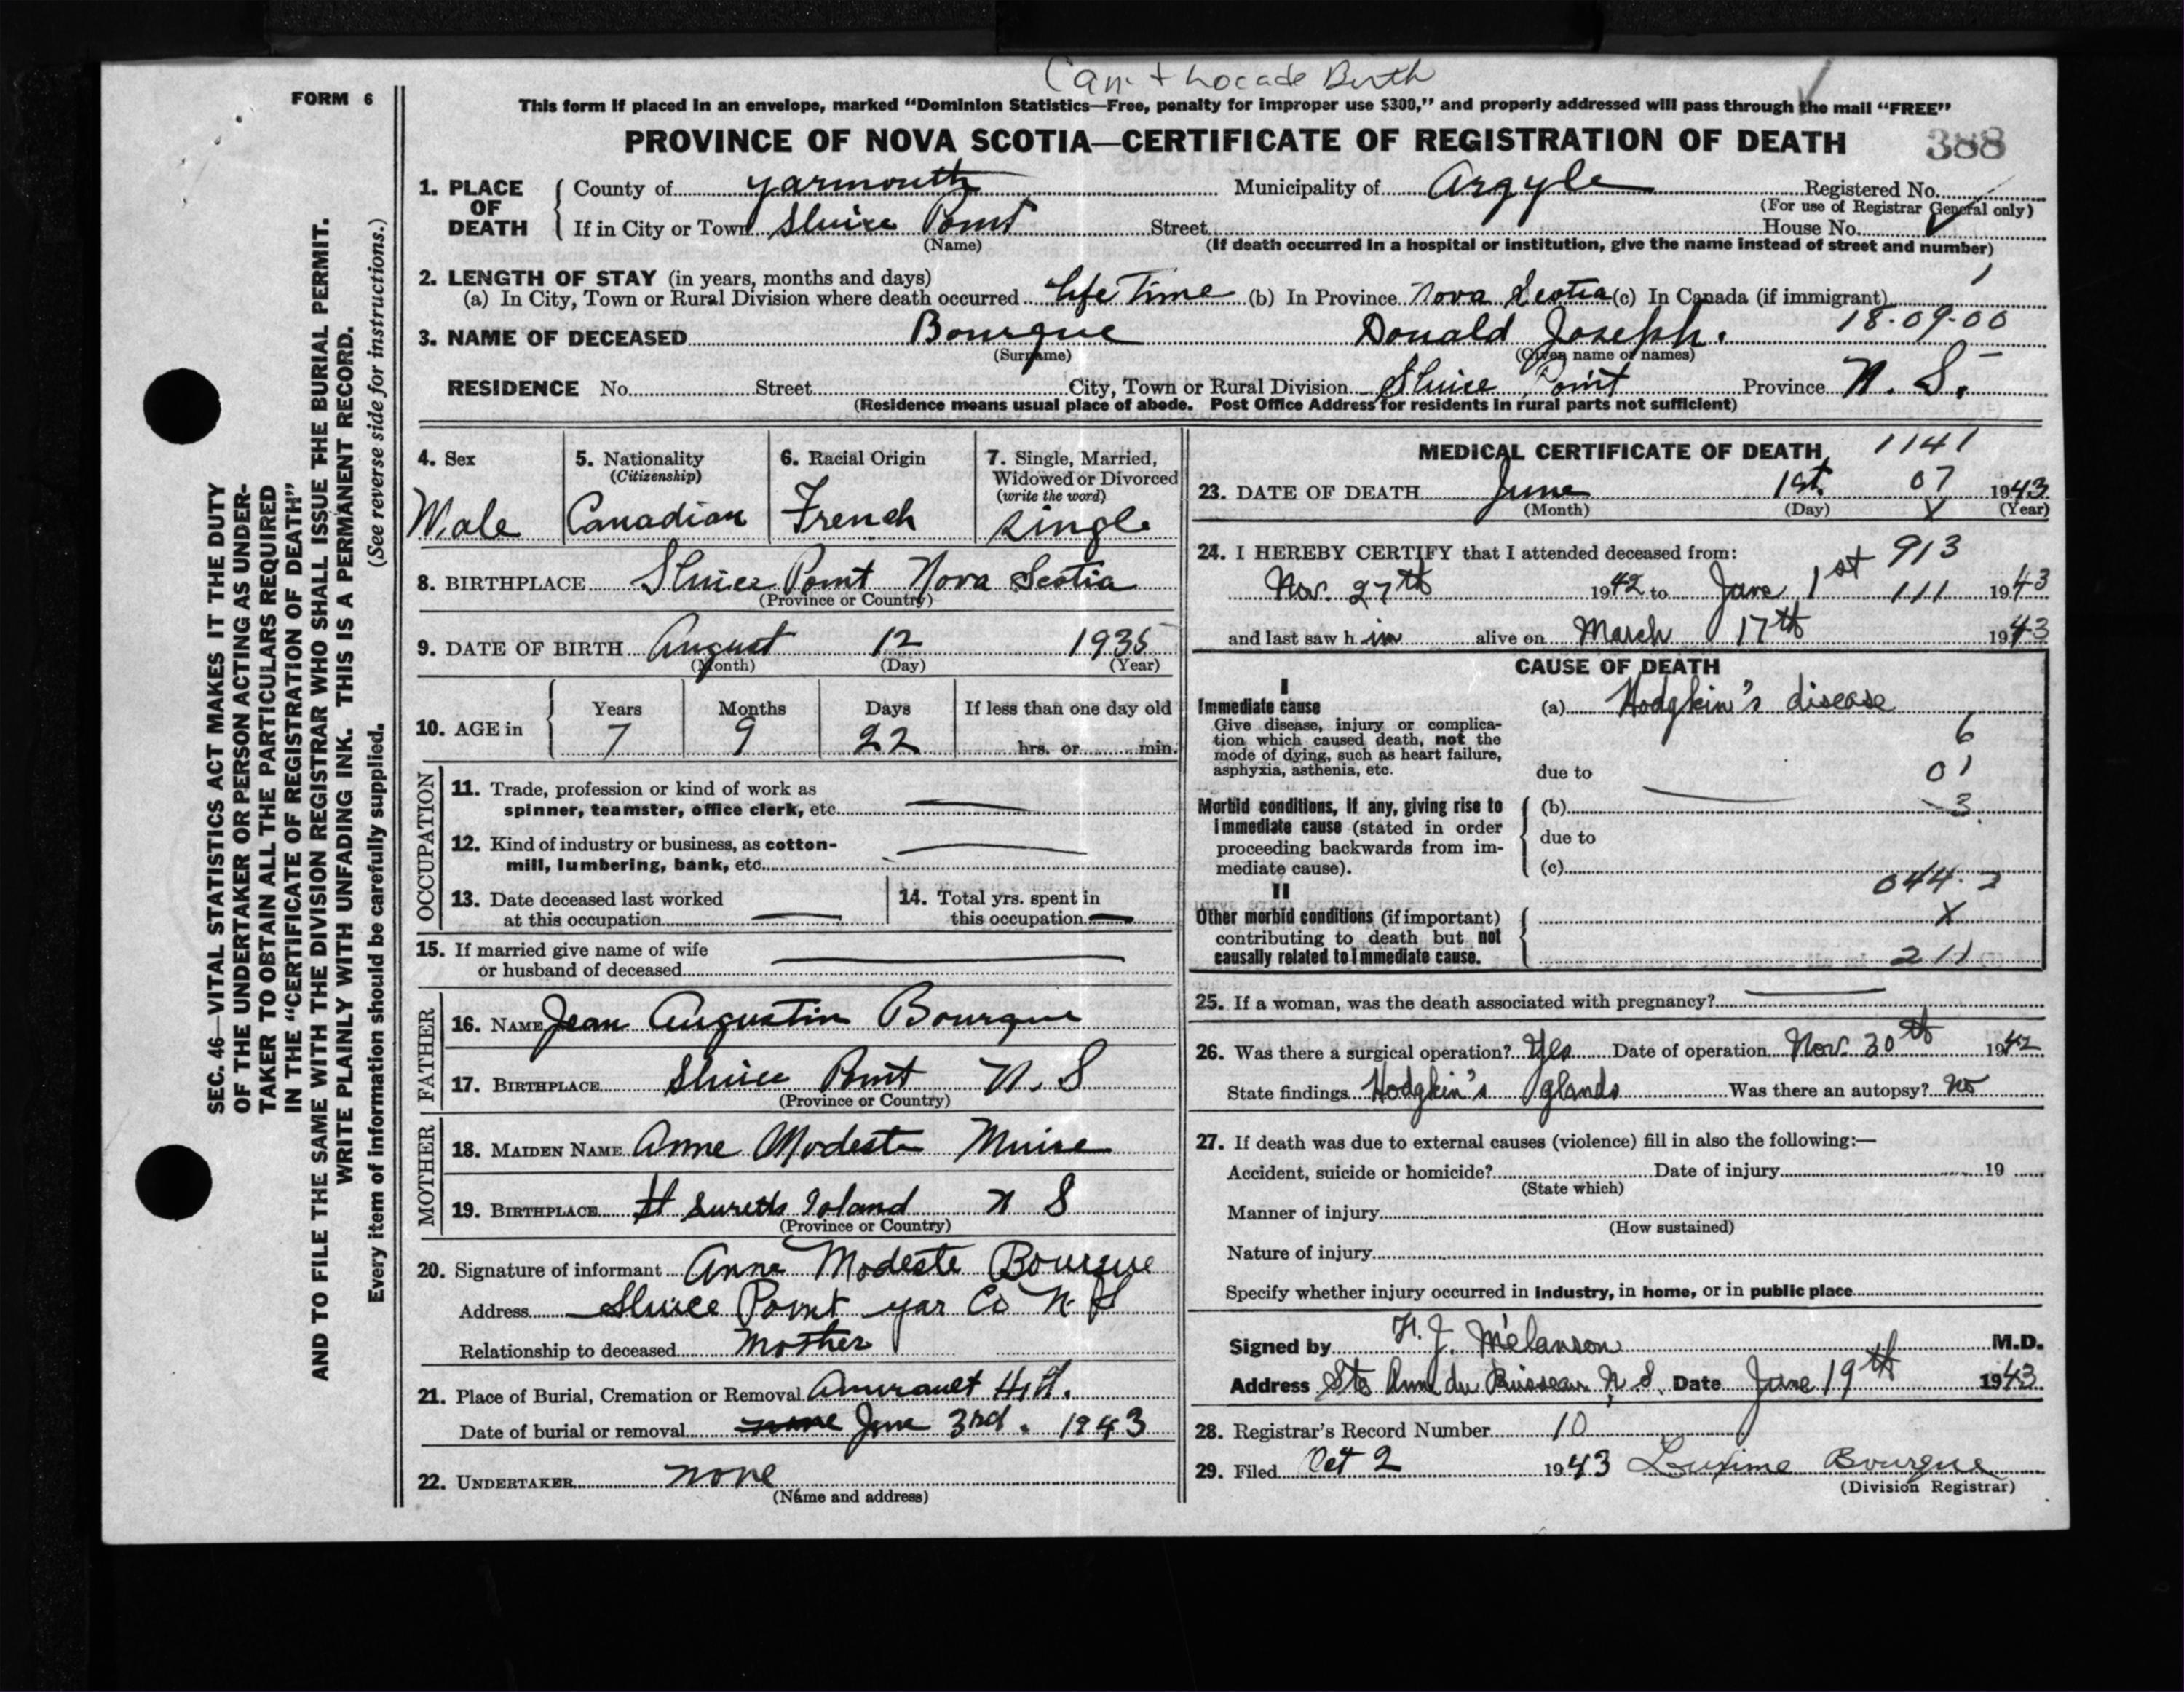 Can't Locate Birth
FORM 6
This form if placed in an envelope, marked "Dominion Statistics—Free, penalty for improper use $300," and properly addressed will pass through the mail "FREE"
PROVINCE OF NOVA SCOTIA—CERTIFICATE OF REGISTRATION OF DEATH 388
1. PLACE OF DEATH County of Yarmouth Municipality of Argyle Registered No.
(For use of Registrar General only)
If in City or Town Sluice Point Street House No.
(Name) (If death occurred in a hospital or institution, give the name instead of street and number)
2. LENGTH OF STAY (in years, months and days)
(a) In City, Town or Rural Division where death occurred Life Time (b) In Province Nova Scotia (c) In Canada (if immigrant)
18-09-00
3. NAME OF DECEASED Bourque Donald Joseph.
(Surname) (Given name or names)
RESIDENCE No. Street City, Town or Rural Division Sluice Point Province N. S.
(Residence means usual place of abode. Post Office Address for residents in rural parts not sufficient)
SEC. 46—VITAL STATISTICS ACT MAKES IT THE DUTY
OF THE UNDERTAKER OR PERSON ACTING AS UNDER-
TAKER TO OBTAIN ALL THE PARTICULARS REQUIRED
IN THE "CERTIFICATE OF REGISTRATION OF DEATH"
AND TO FILE THE SAME WITH THE DIVISION REGISTRAR WHO SHALL ISSUE THE BURIAL PERMIT.
WRITE PLAINLY WITH UNFADING INK. THIS IS A PERMANENT RECORD.
Every item of information should be carefully supplied. (See reverse side for instructions.)
4. Sex 5. Nationality 6. Racial Origin 7. Single, Married,
(Citizenship) Widowed or Divorced
(write the word)
Male Canadian French single
8. BIRTHPLACE Sluice Point Nova Scotia
(Province or Country)
9. DATE OF BIRTH August 12 1935
(Month) (Day) (Year)
10. AGE in Years Months Days If less than one day old
7 9 22 hrs. or min.
OCCUPATION
11. Trade, profession or kind of work as
spinner, teamster, office clerk, etc.
12. Kind of industry or business, as cotton-
mill, lumbering, bank, etc.
13. Date deceased last worked
at this occupation
14. Total yrs. spent in
this occupation
15. If married give name of wife
or husband of deceased
FATHER
16. NAME Jean Augustin Bourque
17. BIRTHPLACE Sluice Point N. S
(Province or Country)
MOTHER
18. MAIDEN NAME Anne Modeste Muise
19. BIRTHPLACE Suretts Island N S
(Province or Country)
20. Signature of informant Anne Modeste Bourque
Address Sluice Point Yar Co N. S
Relationship to deceased Mother
21. Place of Burial, Cremation or Removal Amirault Hill.
Date of burial or removal June 3rd. 1943
22. UNDERTAKER none
(Name and address)
MEDICAL CERTIFICATE OF DEATH 1141
23. DATE OF DEATH June 1st. 07 1943
(Month) (Day) X (Year)
24. I HEREBY CERTIFY that I attended deceased from: 913
Nov. 27th 1942 to June 1st 111 1943
and last saw h im alive on March 17th 1943
CAUSE OF DEATH
I
Immediate cause (a) Hodgkin's disease
Give disease, injury or complica-
tion which caused death, not the 6
mode of dying, such as heart failure,
asphyxia, asthenia, etc. due to 01
Morbid conditions, if any, giving rise to (b) 3
immediate cause (stated in order
proceeding backwards from im- due to
mediate cause). (c)
044.2
II
Other morbid conditions (if important) X
contributing to death but not
causally related to immediate cause. 211
25. If a woman, was the death associated with pregnancy?
26. Was there a surgical operation? Yes Date of operation Nov. 30th 1942
State findings Hodgkin's glands Was there an autopsy? no
27. If death was due to external causes (violence) fill in also the following:—
Accident, suicide or homicide? Date of injury 19
(State which)
Manner of injury
(How sustained)
Nature of injury
Specify whether injury occurred in industry, in home, or in public place
Signed by H. J. Melanson M.D.
Address Ste Anne du Ruisseau N. S. Date June 19th 1943
28. Registrar's Record Number 10
29. Filed Oct 2 1943 Bourque
(Division Registrar)